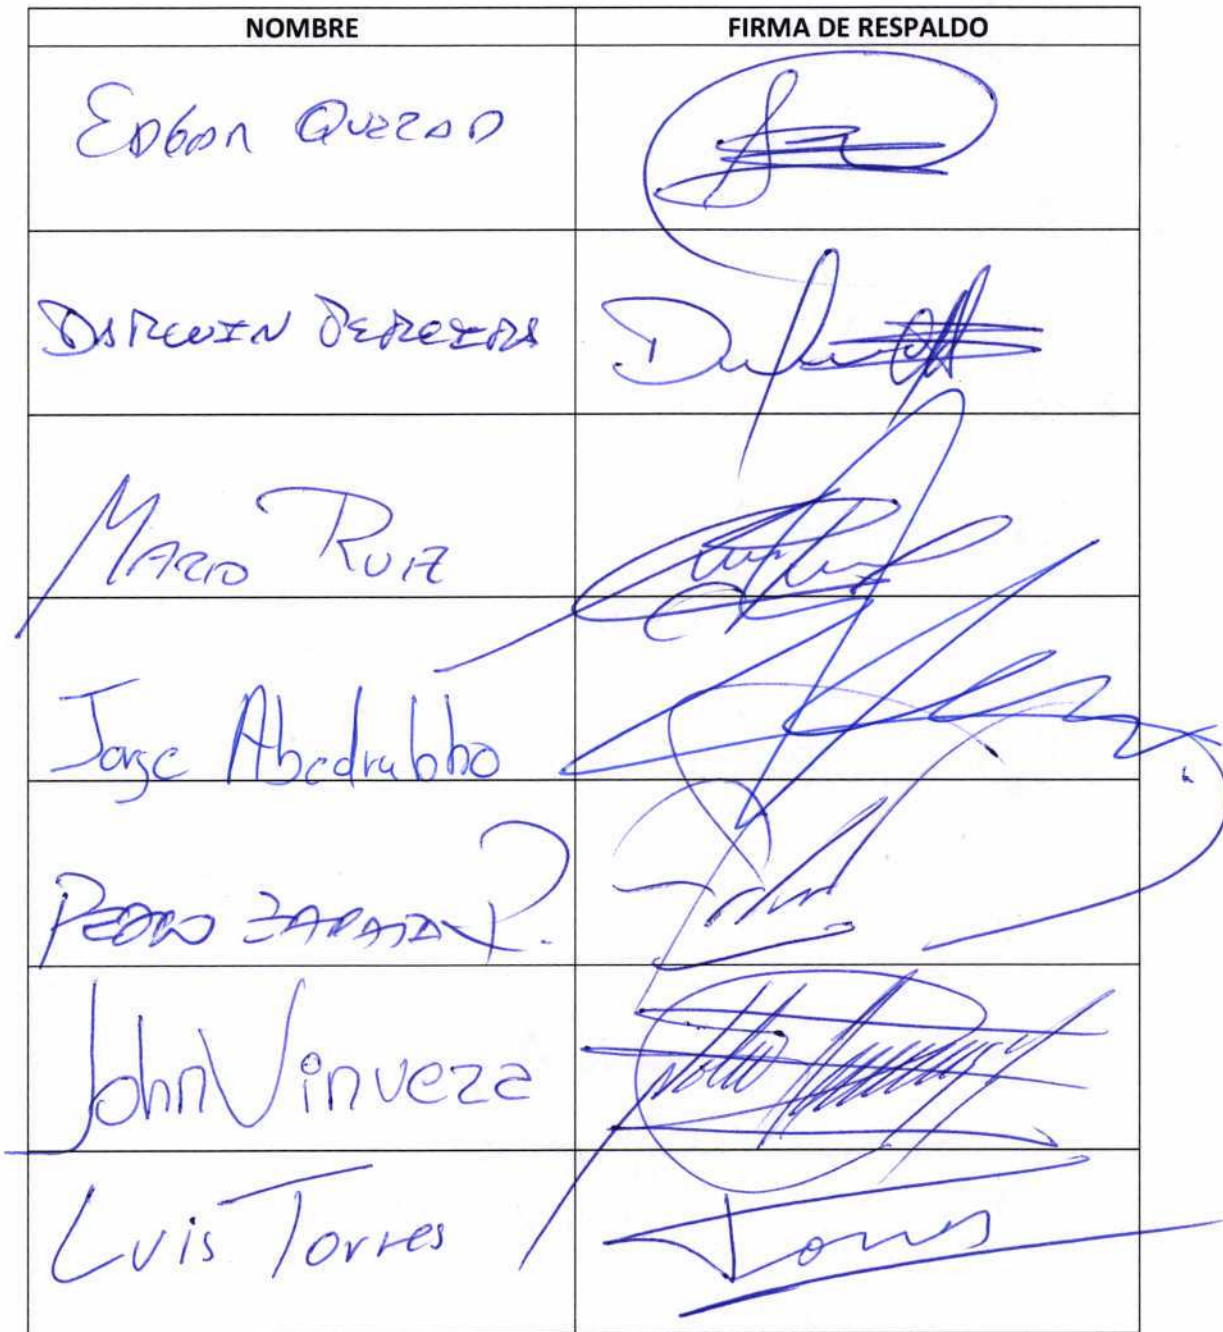 NOMBRE FIRMA DE RESPALDO
EDGAR QUEZAD
DARWIN PEREIRA
MARIO RUIZ
Jorge Abedrabbo
PEDRO ZAPATA P.
John Vinueza
Luis Torres Torres